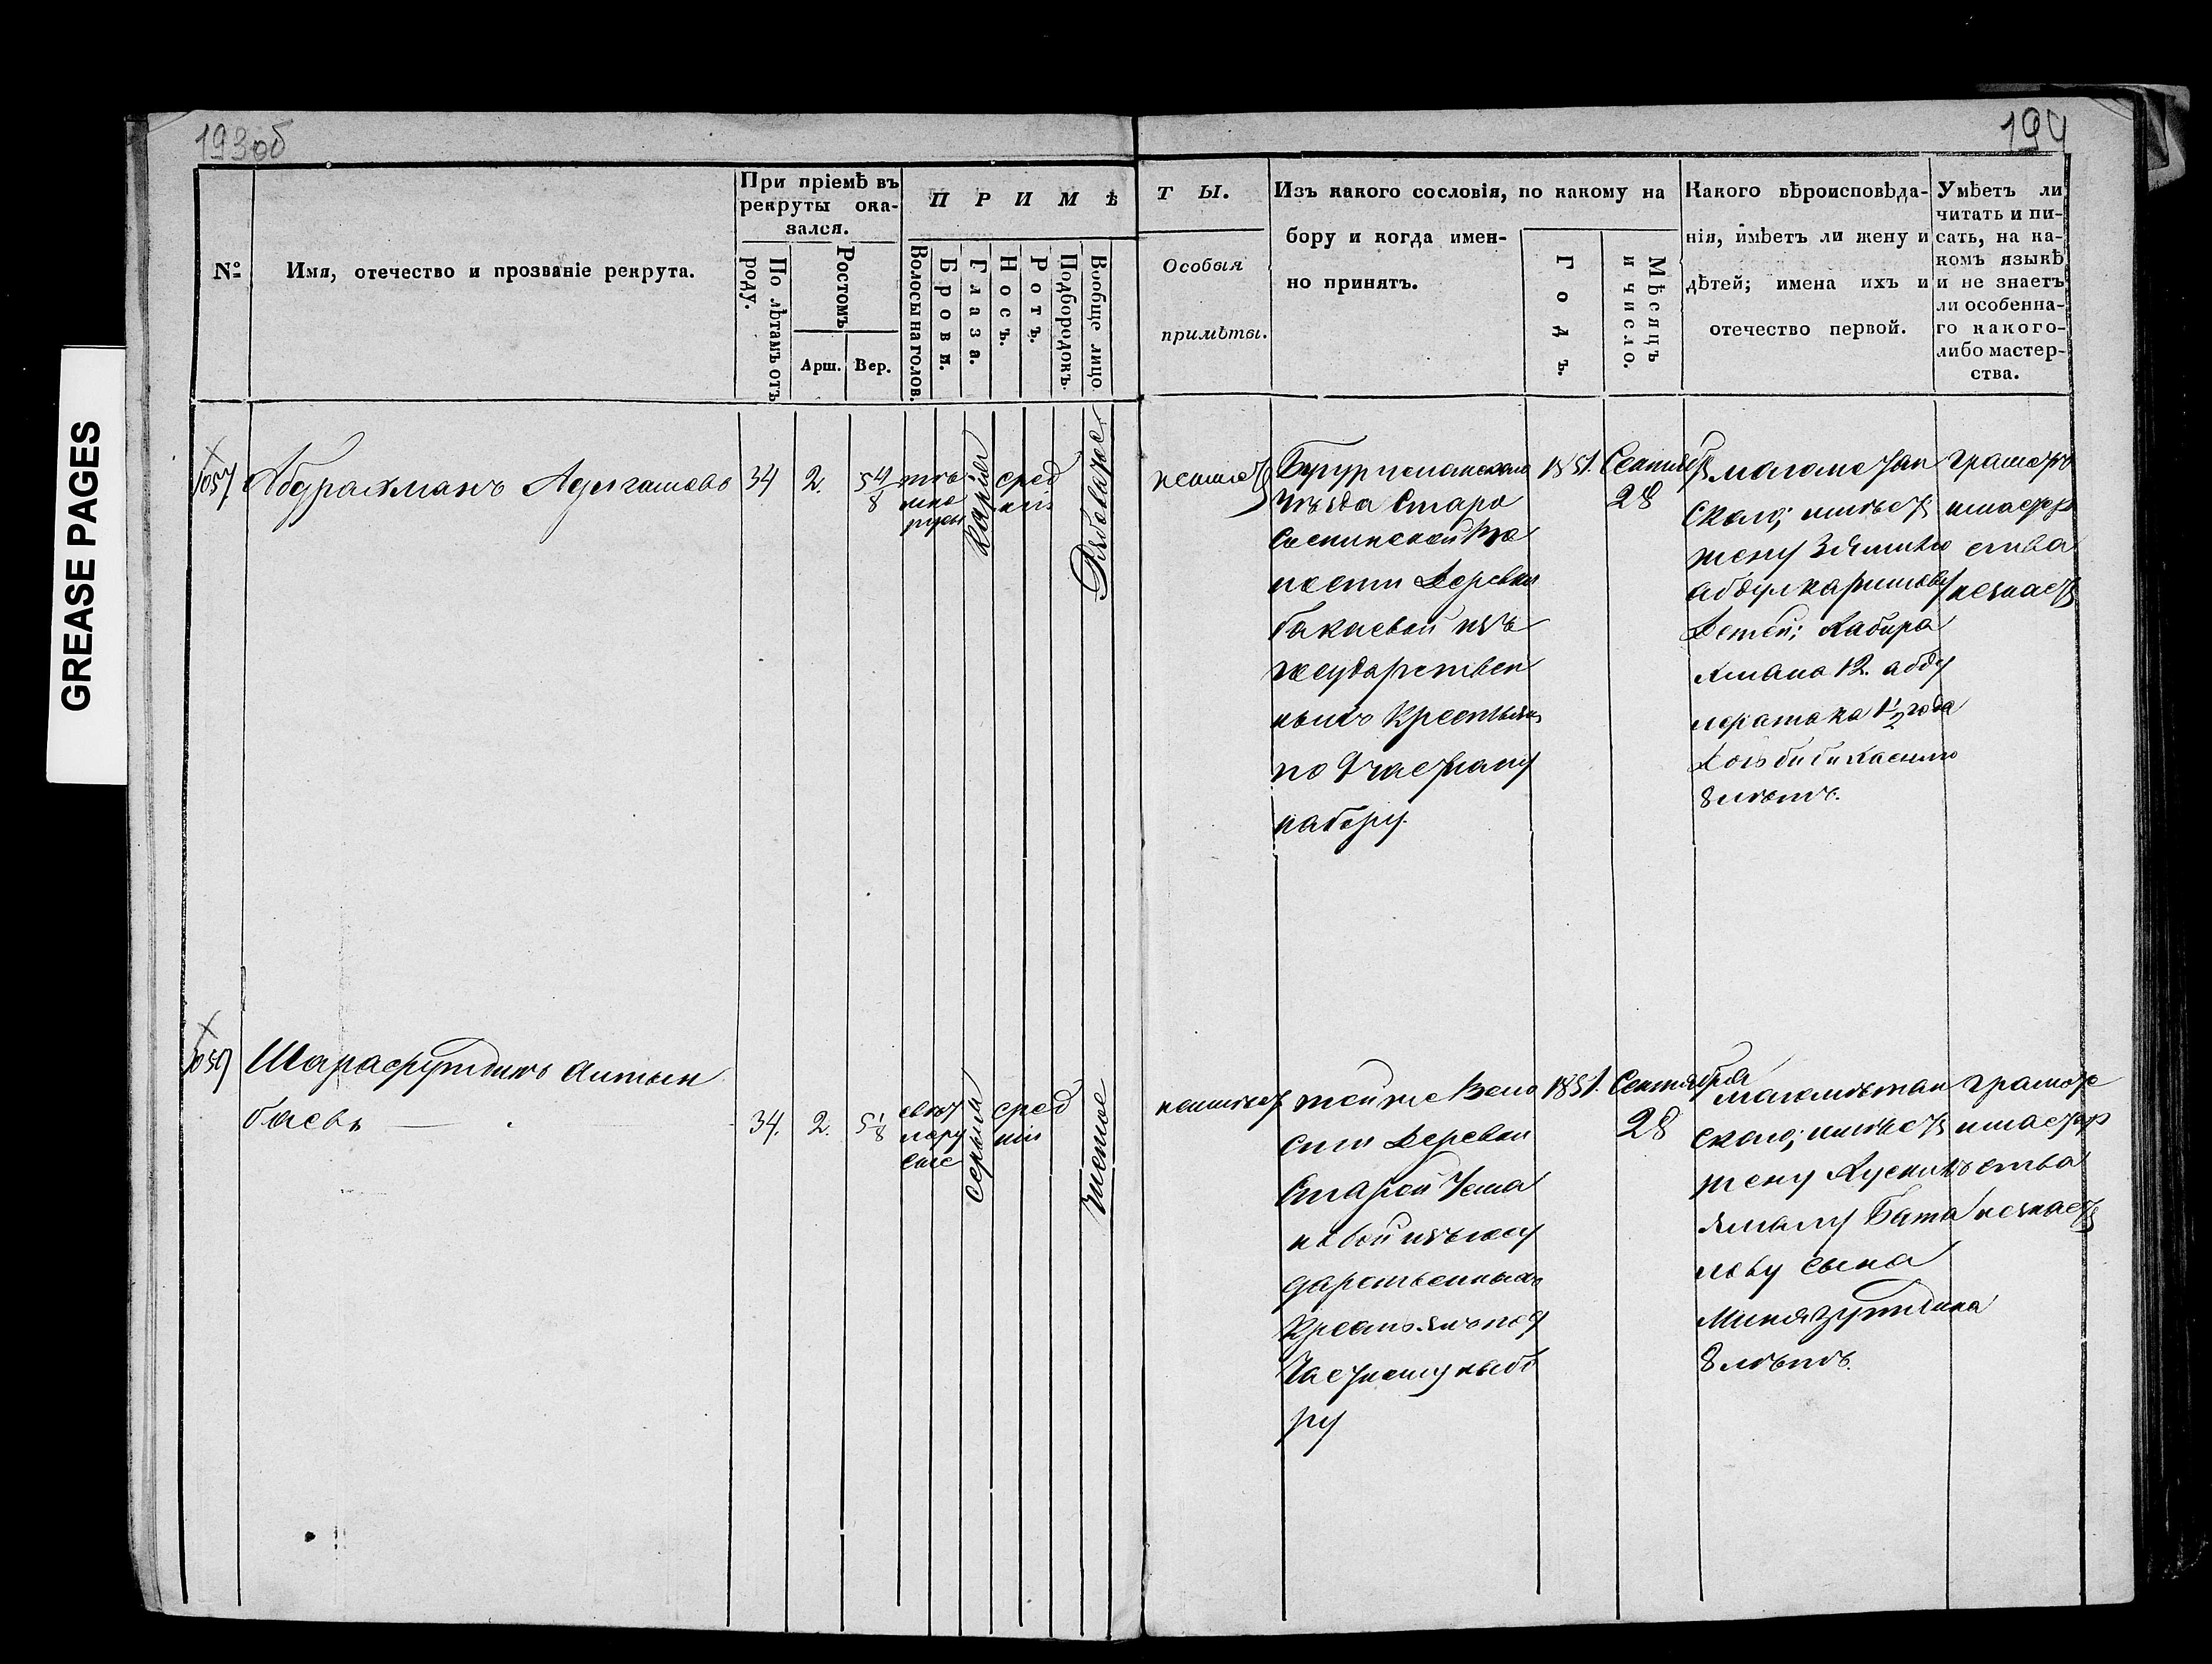 193об
194
GREASE PAGES
№
Имя, отечество и прозваніе рекрута.
При пріемѣ въ
рекруты ока-
зался.
По лѣтамъ отъ
роду.
Ростомъ
Арш.
Вер.
ПРИМѢ
Волосы на голов.
Брови.
Глаза.
Носъ.
Ротъ.
Подбородокъ.
Вообще лицо
ТЫ.
Особыя
примѣты.
Изъ какого сословія, по какому на
бору и когда имен-
но принятъ.
Годъ.
Мѣсяцъ
и число.
Какого вѣроисповѣда-
нія, имѣетъ ли жену и
дѣтей; имена ихъ и
отечество первой.
Умѣетъ ли
читать и пи-
сать, на ка-
комъ языкѣ
и не знаетъ
ли особенна-
го какого-
либо мастер-
ства.
1057
Абдрахманъ
34
2.
5 4/8
тем
но
русы
карія
сред
ніе
Рябоватое
неимеет
Бугурусланскаго
Уѣзда Старо
Соснинской Воло
ности Деревни
бакаевой изъ
государствен
ныхъ Крестьянъ
по 9 частному
набору.
1851.
Сентября
28
магометан
скаго; имѣетъ
жену
абдулкаримову
Детей;
12. абду
1 1/2 года
8 лѣтъ.
грамоте
и мастер
ства
незнаетъ
1059
Шарафутдинъ Алтын
баевъ
34.
2.
5 1/8
свет
лору
сые
серыя
сред
ніе
Чистое
неимѣет
той же Воло
сти Деревни
Старой
новой изъ госу
дарственныхъ
Крестьянъ по 9
Частному набо
ру
1851.
Сентября
28
магамѣтан
скаго; имѣетъ
жену Хусни
ямалу Бата
лову сына
Минязутдина
8 лѣтъ.
грамоте
и мастер
ства
незнаетъ